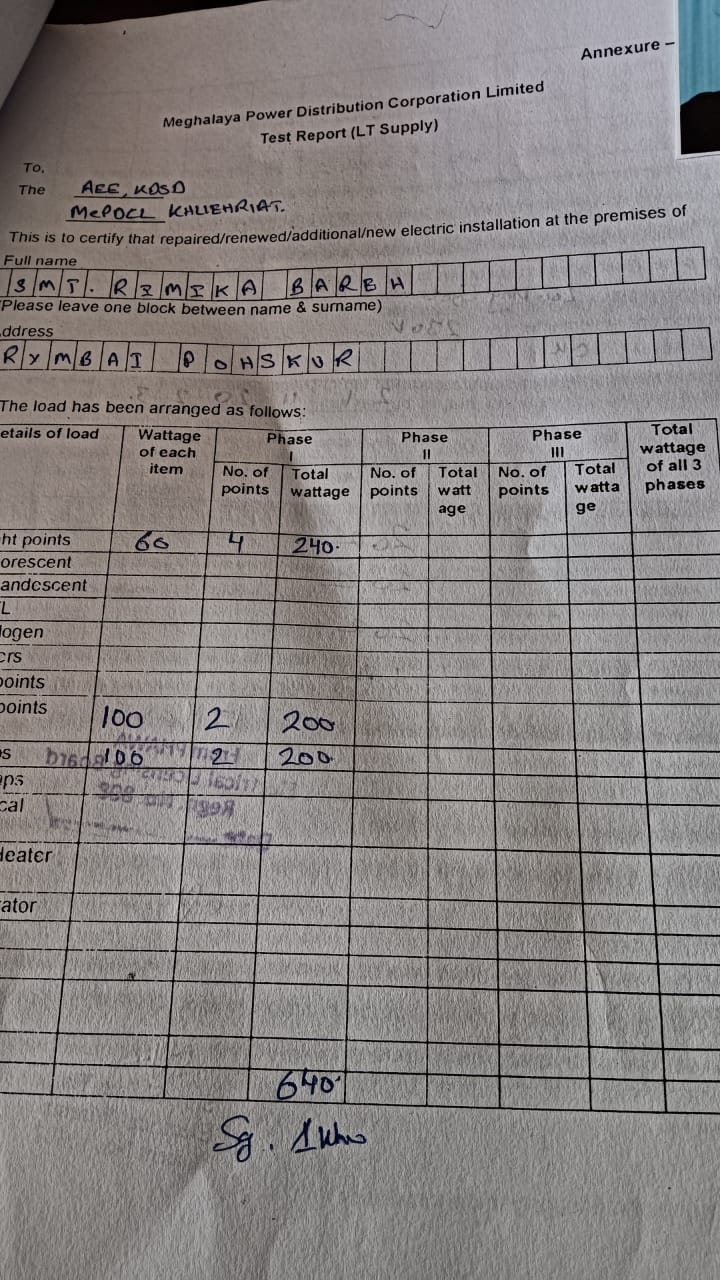 Annexure –
Meghalaya Power Distribution Corporation Limited
Test Report (LT Supply)
To,
The AEE, KDSD
MePDCL KHLIEHRIAT.
This is to certify that repaired/renewed/additional/new electric installation at the premises of
Full name
SMT. RIMIKA BAREH
Please leave one block between name & surname)
ddress
RYMBAI POHSKUR
The load has been arranged as follows:
etails of load Wattage of each item Phase I Phase II Phase III Total wattage of all 3 phases
No. of points Total wattage No. of points Total watt age No. of points Total watta ge
ht points 60 4 240.
orescent
andescent
L
logen
ers
points
points 100 2 200
s 100 2 200.
ps
cal
Heater
ator
640.